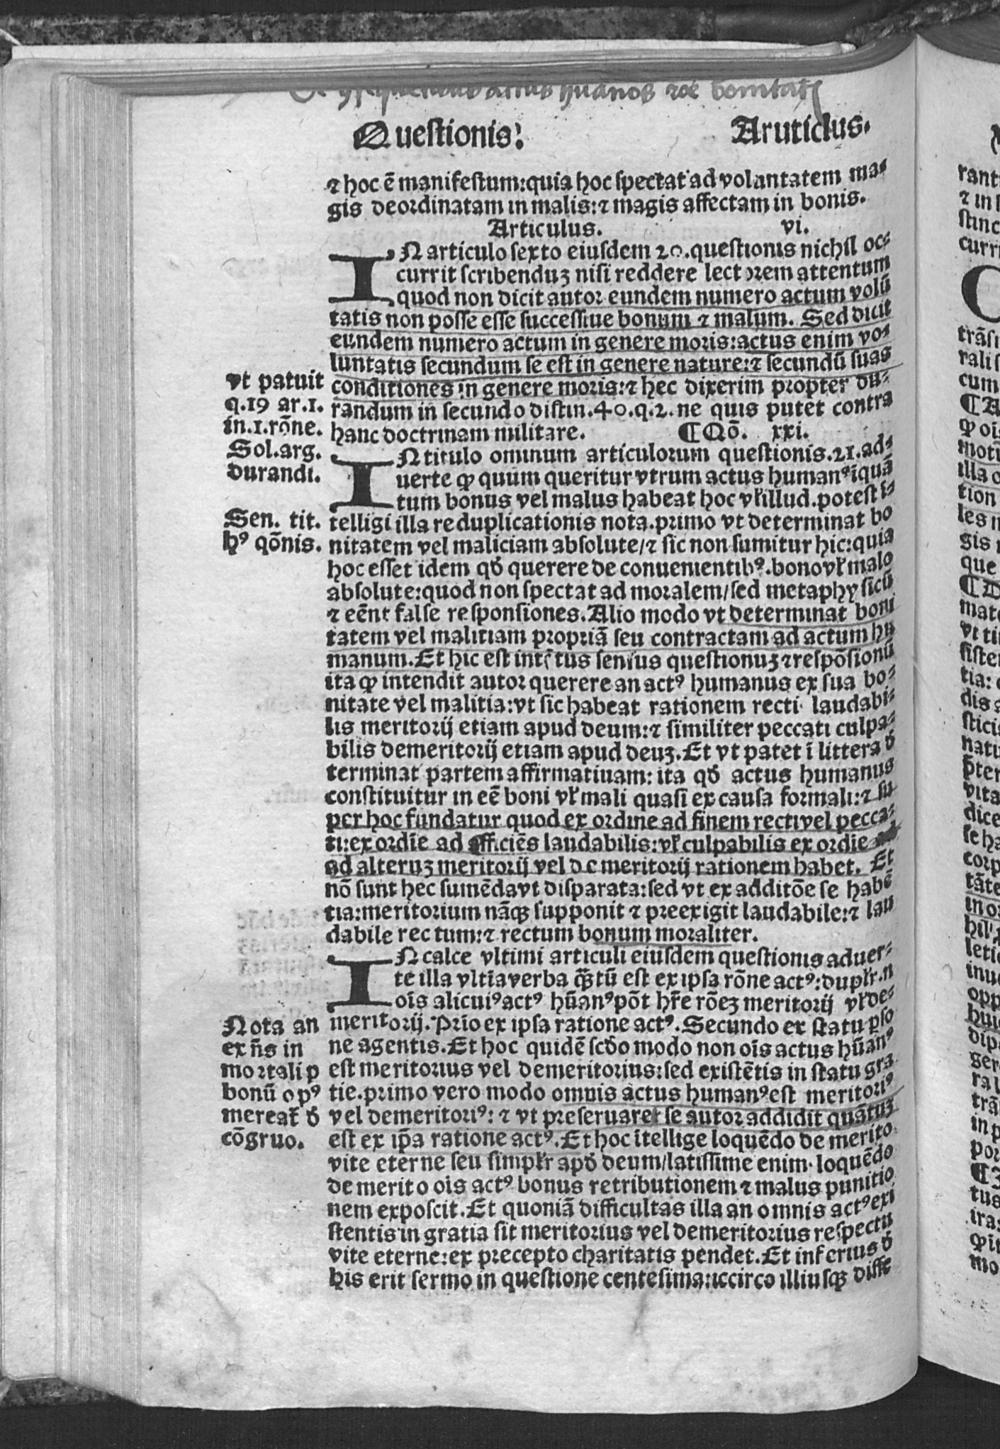 Questionis. Aruticlus.
⁊ hoc ē manifestum:quia hoc spectat ad volantatem ma⸗
gis deordinatam in malis:⁊ magis affectam in bonis.
Articulus. vi.
IN articulo sexto eiusdem 20.questionis nichil oc⸗
currit scribenduȝ nisi reddere lectorem attentum
quod non dicit autor eundem numero actum volū
tatis non posse esse successiue bonum ⁊ malum. Sed dicit
eundem numero actum in genere moris:actus enim vo⸗
luntatis secundum se est in genere nature:⁊ secundū suas
conditiones in genere moris:⁊ hec dixerim propter du⸗
randum in secundo distin.40.q.2. ne quis putet contra
hanc doctrinam militare. ¶Qō. xxi.
vt patuit
q.19 ar.1.
in.1.rōne.
Sol.arg.
durandi.
IN titulo omnium articulorum questionis.21.ad⸗
uerte ꝙ quum queritur vtrum actus humanꝰ īquā
tum bonus vel malus habeat hoc vƚ illud.potest ī
telligi illa reduplicationis nota.primo vt determinat bo
nitatem vel maliciam absolute/⁊ sic non sumitur hic:quia
hoc esset idem qd̄ querere de conuenientibꝰ.bono vƚ malo
absolute:quod non spectat ad moralem/sed metaphysicū
⁊ eēnt false responsiones.Alio modo vt determinat boni
tatem vel malitiam propriā seu contractam ad actum hu
manum.Et hic est intētus sensus questionuȝ ⁊ respōsionū
ita ꝙ intendit autor querere an actꝰ humanus ex sua bo⸗
nitate vel malitia:vt sic habeat rationem recti laudabi⸗
lis meritorij etiam apud deum:⁊ similiter peccati culpa⸗
bilis demeritorij etiam apud deuȝ.Et vt patet ī littera ď
terminat partem affirmatiuam: ita qd̄ actus humanus
constituitur in eē boni vƚ mali quasi ex causa formali:⁊ su
per hoc fundatur quod ex ordine ad finem recti vel pecca⸗
ti:ex ordīe ad efficiēs laudabilis:vƚ culpabilis ex ordīe
ad alteruȝ meritorij vel de meritorij rationem habet. Et
nō sunt hec sumēda vt disparata:sed vt ex additōe se habē
tia:meritorium nāqꝫ supponit ⁊ preexigit laudabile:⁊ lau
dabile rectum:⁊ rectum bonum moraliter.
Sen. tit.
hꝰ qōnis.
IN calce vltimi articuli eiusdem questionis aduer⸗
te illa vltīa verba qȝtū est ex ipsa rōne actꝰ:duplr.n
oīs alicuiꝰ actꝰ hūanꝰ pōt hr̄e rōeȝ meritorij vƚ de⸗
meritorij.Prīo ex ipsa ratione actꝰ.Secundo ex statu ꝑso
ne agentis.Et hoc quidē scd̄o modo non oīs actus hūanꝰ
est meritorius vel demeritorius:sed existētis in statu gra
tie.primo vero modo omnis actus humanꝰ est meritoriꝰ
vel demeritoriꝰ: ⁊ vt preseruaret se autor addidit quātuȝ
est ex ip̄a ratione actꝰ.Et hoc ītellige loquēdo de merito
vite eterne seu simplr apd̄ deum/latissime enim loquēdo
de merito oīs actꝰ bonus retributionem ⁊ malus punitio
nem exposcit.Et quoniā difficultas illa an omnis actꝰ exi
stentis in gratia sit meritorius vel demeritorius respectu
vite eterne:ex precepto charitatis pendet.Et inferius ď
his erit sermo in questione centesima:iccirco illiusqꝫ diffe
Nota an
exn̄s in
mortali p
bonū opꝰ
mereat̄ ď
cōgruo.